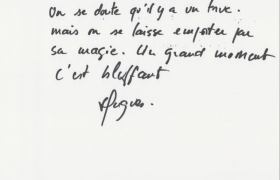 On se doute qu'il y a un truc.
mais on se laisse emporter par
sa magie. Un grand moment
c'est bluffant
Hugues.